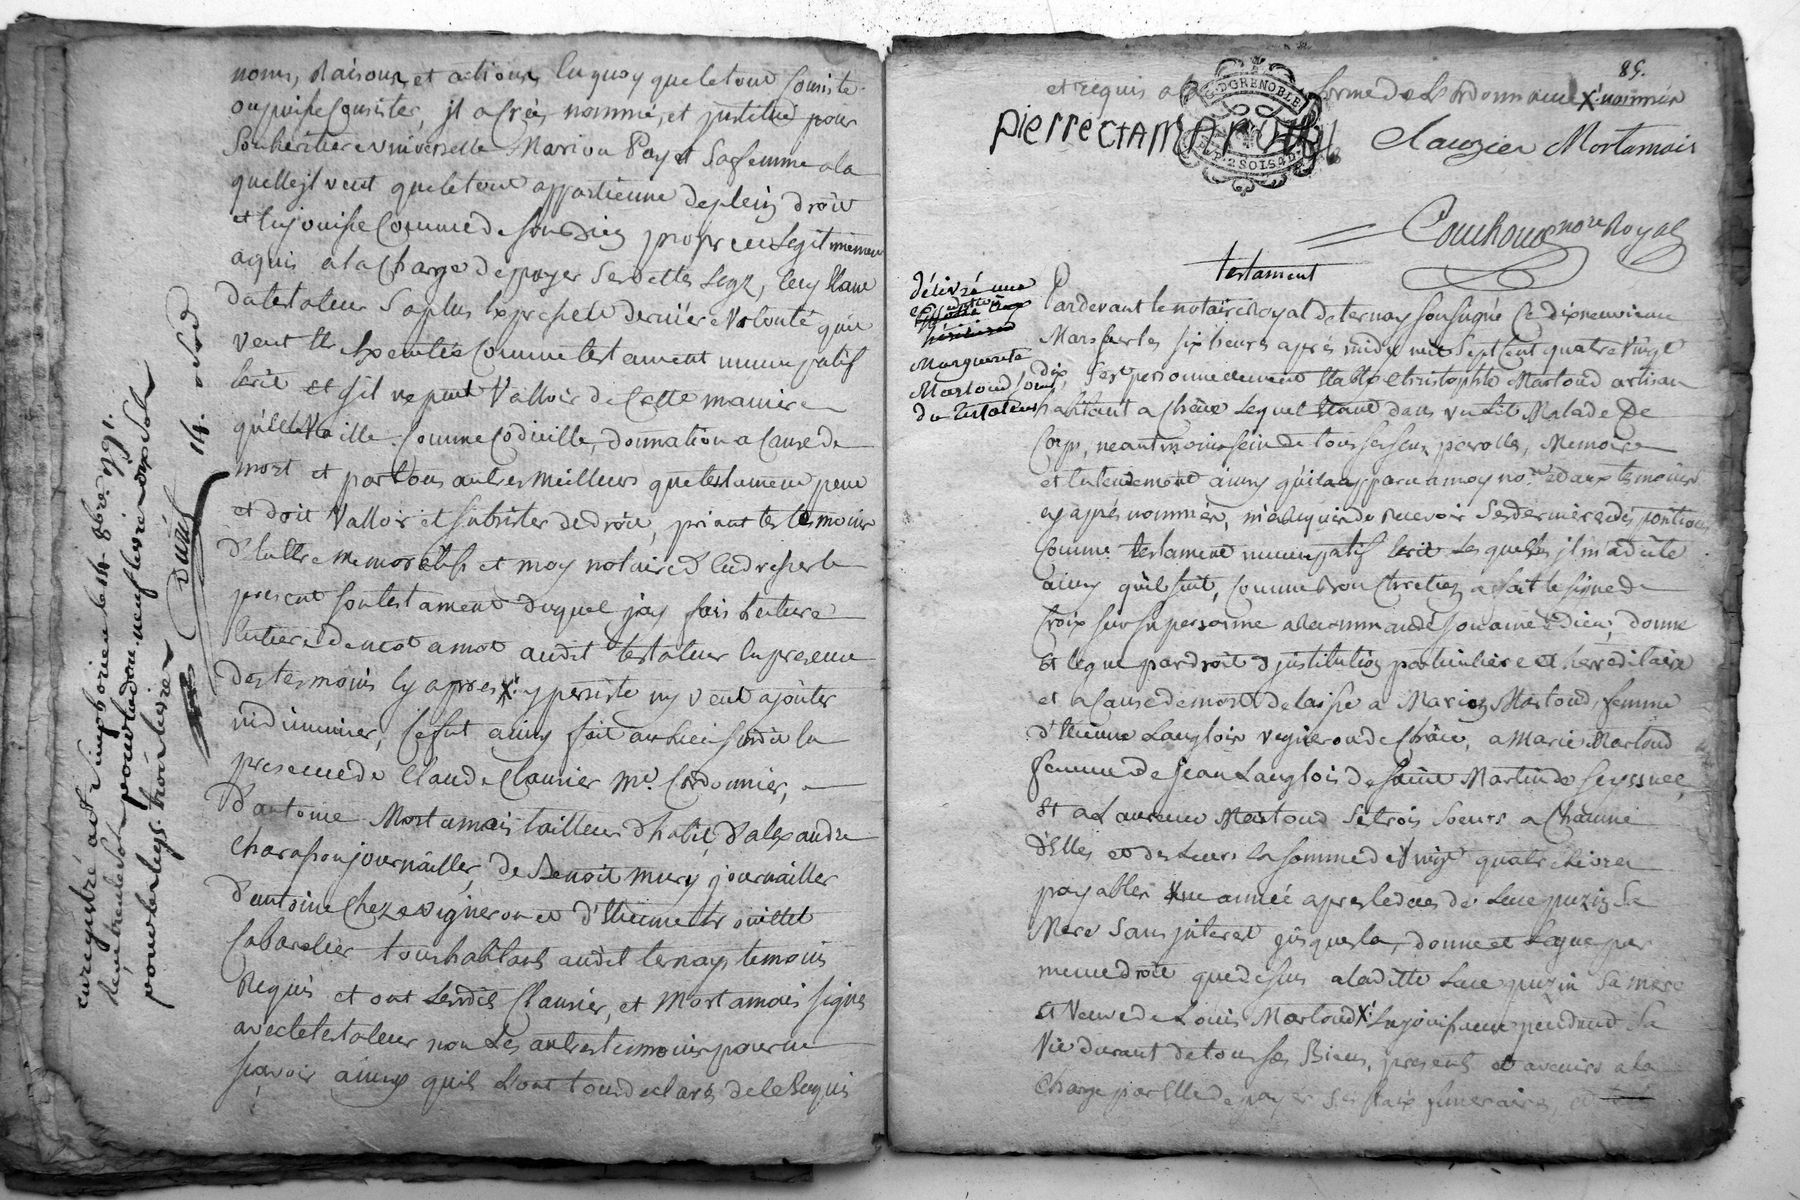 noms, Raisons, et actions En quoy que le tout Consiste
ou puisse Consister, jl a Créé, nommé, et jnstitué pour
Son heritiere universelle Marion Payet Sa femme a la
quelle jl veut que le tout appartienne de plein droit
et En jouisse Comme de Son Bien propre et Legitimement
aquis a la Charge de payer Ses dettes Legz, Cecy Etant
du testateur Sa plus Expresse et derniére Volonté qu'il
veut Etre Executée Comme testament nuncupatif
Ecrit et S'il ne peut Valloir de Cette maniere
qu'elle Vaille Comme Codicille, donnation a Cause de
mort et par tous autres meilleurs que testament peut
et doit Valloir et Subsister de droit, priant les temoins
d'En Etre memoratifs et moy notaire d'En dresser le
present Son testament duquel j'ay fait Lecture
Entiere de mot a mot audit testateur En presence
des temoins Cy apres X y persiste n'y veut ajoûter
ni diminuer, Ce fut ainsy fait au Lieu Susdit En
presence de Claude Clauzier Me. Cordonnier,
d'antoine Mortamais tailleur d'habit, d'alexandre
Charasson journaillier, de Benoit mury journaillier
d'antoine Cheze vigneron et d'Etienne trouillet
Cabaretier tous habitans audit ternay temoins
Requis et ont Lesdits Clauzier, et Mortamais Signés
avec le testateur non Les autres temoins pour ne
Sçavoir ainsy qu'ils L'ont tous declarés de ce Requis
enregistré a St Simphorien le 14. 8bre 1791.
Reçu trente sols pour led. neuf livres dix sols
pour les legs. trois livres 14. sols
Duval
85.
et requis forme de L'ordonnance X nommés
pierre CHAMAROUX
Clauzier Mortamais
G. D GRENOBLE
P. P. 2 SOLS 4 D.
Couchoud nore Royal
testament
délivré une
Marguerite
Martoud, soeur
du testateur
Pardevant le notaire Royal de ternay Soussigné Ce dixneuvieme
Mars sur les Six heures aprés midy mil Sept Cent quatre vingt
dix, Sest personnelement Etably Christophle Martoud artisan
habitant a Chéne Lequel Etant dans un Lit Malade de
Corps, neantmoins Sein de tous Ses Sens, parolle, Memoire
et Entendement ainsy qu'il a apparu a moy nore. et aux temoins
cy aprés nommés, m'a Requis de Recevoir Ses dernieres dispositions
Comme testament nuncupatif Ecrit Lesquelles jl m'a dicté
ainsy qu'il Suit, Comme Bon Chretien a fait le Signe de
Croix Sur Sa personne a Recommandé Son ame a dieu, donne
Et legue par droit d'jnstitution particuliére et herreditaire
et a Cause de mort delaisse a Marion Martoud, femme
d'Etienne Langlois vigneron de Chéne, a Marie Martoud
femme de Jean Langlois de Saint Martin de Seyssuel,
Et a Laurence Martoud Se trois Soeurs a Chacune
d'Elles et des Leurs La Somme de Vingt quatre Livres
payables Une année apres le deces de Luce puzin Sa
Mere Sans jnteret jusques la, donne et Legue par
meme droit que dessus a ladite Luce puzin Sa mére
Et Veuve de Louis Martoud X La jouissance pendant Sa
Vie durant de tous Ses Biens, présents et avenirs a la
Charge par Elle de payer Ses fraix funeraires,